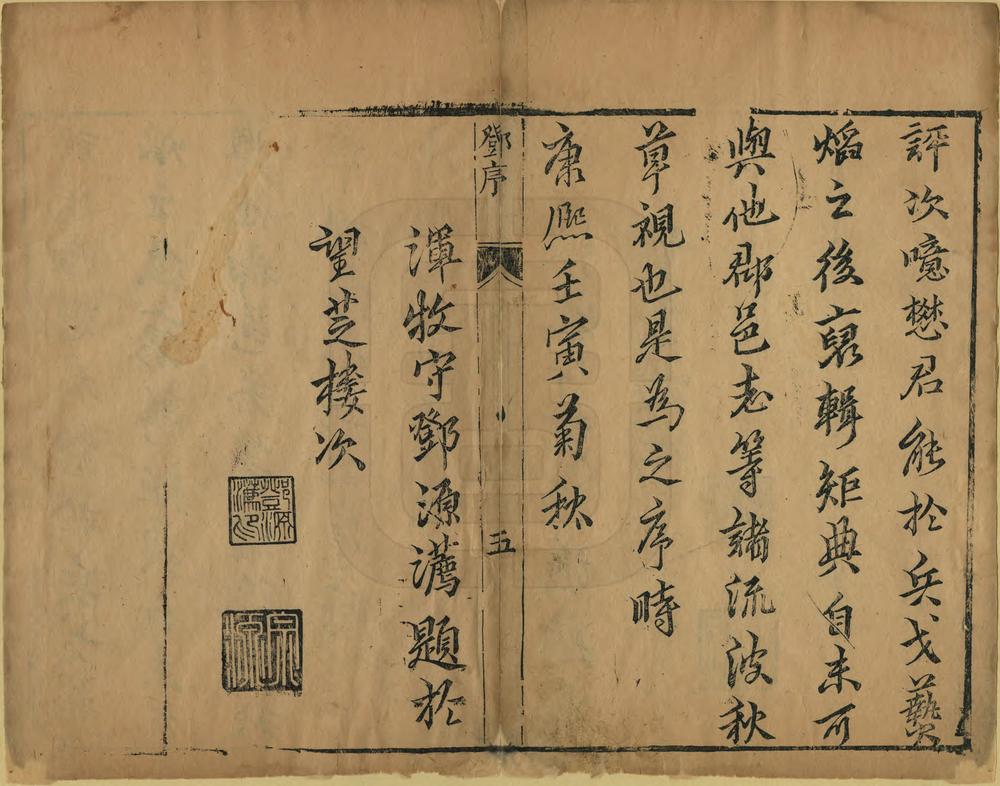 評次噫懋君能於兵戈爇
熖之後裒輯矩典自未可
與他郡邑志等諸流波秋
草視也是為之序時
康熙壬寅菊秋
鄧序
五
渾牧守鄧源𤅢題於
望芝樓次
鄧源𤅢印